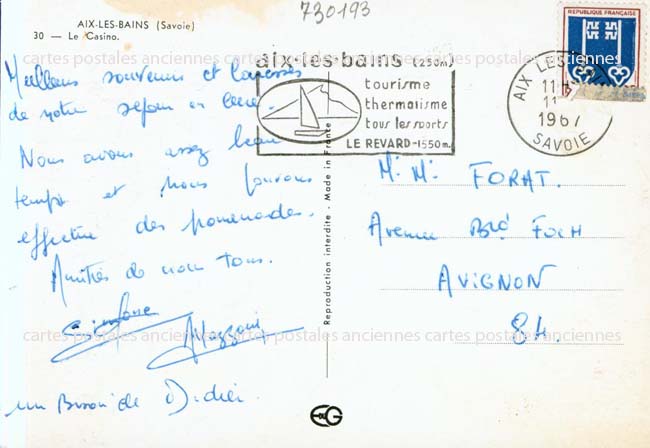 730193
AIX-LES-BAINS (Savoie)
30 — Le Casino.
cartes postales anciennes cartes postales anciennes cartes postales anciennes
Meilleurs souvenirs et caresses
de notre séjour en cure.
Nous avons assez beau
temps et nous pouvons
effectuer des promenades.
Amitiés de nous tous.
Simone
un Bisou de Didier
aix-les-bains (250m)
tourisme
thermalisme
tous les sports
LE REVARD-1550m.
REPUBLIQUE FRANÇAISE
AIX LES
11
1967
SAVOIE
Reproduction interdite - Made in France
M. M. FORAT.
Avenue Foch
AVIGNON
84.
cartes postales anciennes cartes postales anciennes cartes postales anciennes